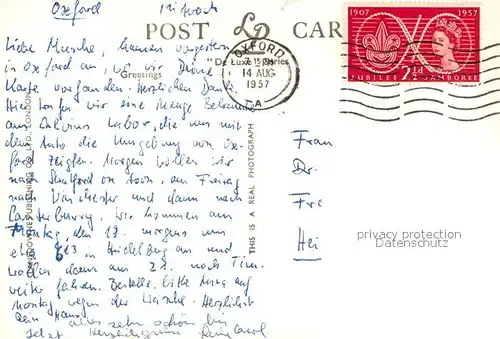 Oxford Mittwoch
POST LD CARD
"De Luxe" Series
Greetings
OXFORD
7 15 PM
14 AUG
1957
A
1907 1957
JUBILEE JAMBOREE
2½d
Liebe Musche, kamen vorgestern
in Oxford an, wo wir Deine
Karte vorfanden. Herzlichen Dank.
Hier trafen wir eine Menge Bekannte
aus Calvins Labor, die uns mit
dem Auto die Umgebung von Ox-
ford zeigten. Morgen wollen wir
nach Stratford on Avon, am Freitag
nach Winchester und dann nach
Canterbury. Wir kommen am
Montag, den 19. morgens um
etwa 8 13 in Heidelberg an und
wollen dann am 21. nach
weiter fahren. Bestelle bitte Anna auf
Montag wegen der Wäsche. Herzlichst
Dein Hans
alles sehr schön
Jetzt Herzliche Grüsse Deine Carol
THIS IS A REAL PHOTOGRAPH
PUBLISHING CO. LTD. LONDON
Frau
Dr.
Fre
Hei
privacy protection
Datenschutz